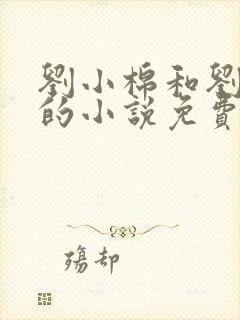 劉小棉和劉
的小説免費
殤却